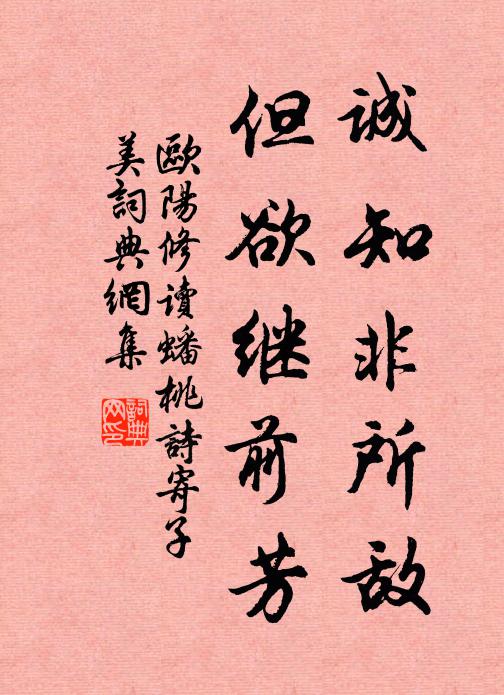 誠知非所敌
但欲继前芳
歐陽修读蟠桃詩寄子
美詞典網集
詞典网印